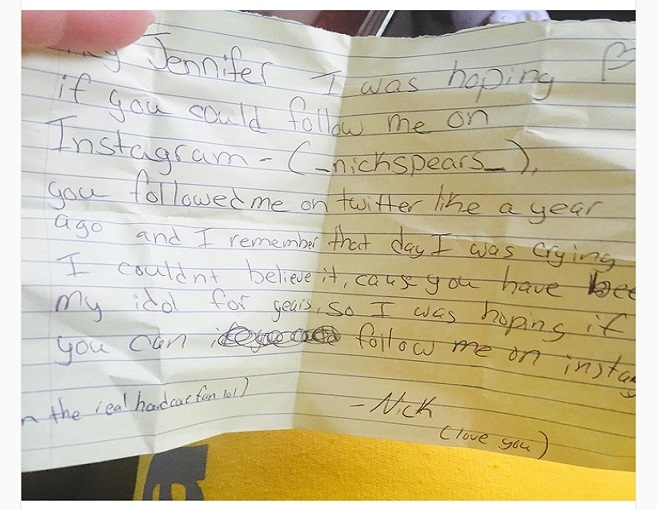 Jennifer I was hoping
if you could follow me on
Instagram - (_nickspears_),
you followed me on twitter like a year
ago and I remember that day I was crying
I couldnt believe it, cause you have bee
my idol for years, so I was hoping if
you can follow me on insta
n the real hardcore fan lol)
- Nick
(love you)